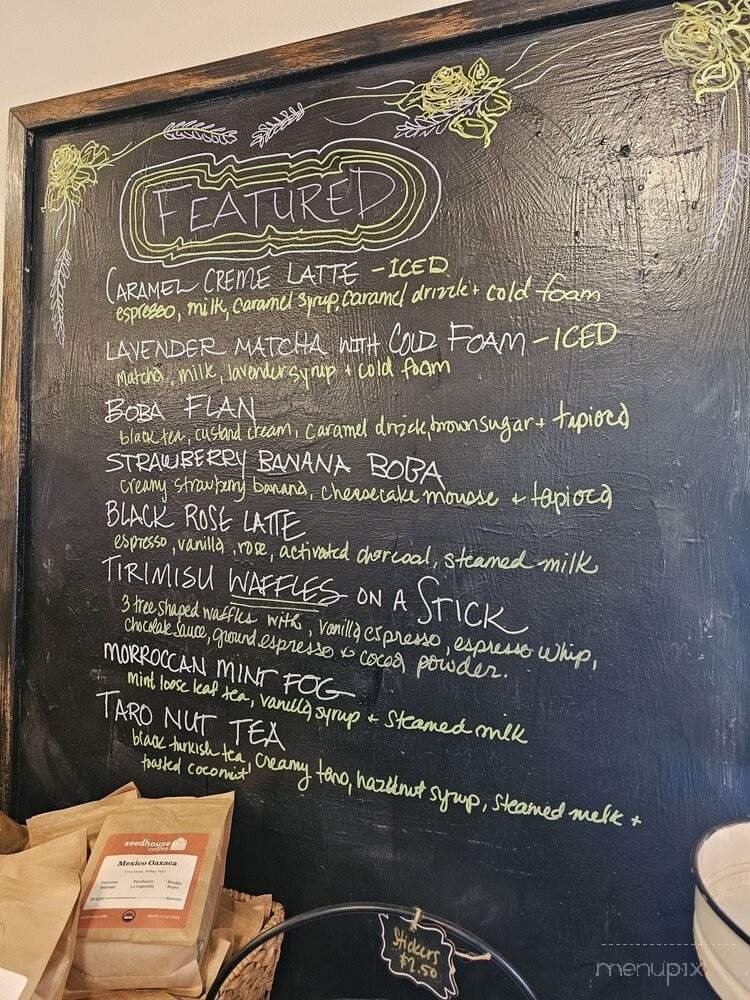 FEATURED
CARAMEL CREME LATTE - ICED
espresso, milk, caramel syrup, caramel drizzle + cold foam
LAVENDER MATCHA WITH COLD FOAM - ICED
Matcha, milk, lavender syrup + cold foam
BOBA FLAN
black tea, custard cream, caramel drizzle, brown sugar + tapioca
STRAWBERRY BANANA BOBA
creamy strawberry banana, cheesecake mousse + tapioca
BLACK ROSE LATTE
espresso, vanilla, rose, activated charcoal, steamed milk
TIRIMISU WAFFLES ON A STICK
3 tree shaped waffles with, vanilla espresso, espresso whip,
chocolate sauce, ground espresso & cocoa powder.
MORROCCAN MINT FOG
mint loose leaf tea, vanilla syrup + steamed milk
TARO NUT TEA
black turkish tea, creamy taro, hazelnut syrup, steamed melk +
toasted coconut
seedhouse
coffee
Mexico Oaxaca
Process
Producer
La Capilla
Stickers
$2.50
menupix